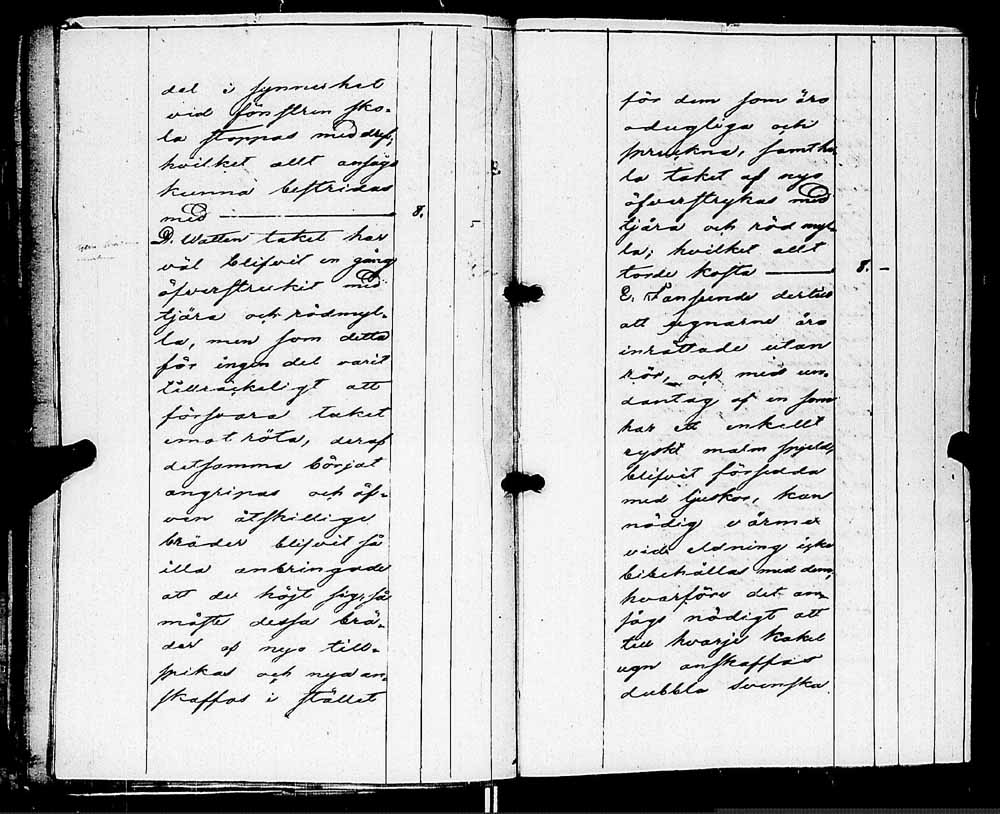 del i synnerhet
vid fönstren sko-
la stoppas med dref,
hvilket allt ansågs
kunna bestridas
med ——— 8.
D. Watten taket har
väl blifvit en gång
öfverstruket med
tjära och rödmyl-
la, men som detta
för ingen del varit
tillräckeligt att
försvara taket
emot röta, deraf
detsamma börjat
angripas och äf-
ven åtskillige
bräder blifvit så
illa anbringade
att de höjt sig, så
måste dessa brä-
der af nyo till-
spikas och nya an-
skaffas i stället
för dem som äro
odugliga och
spruckna, samt he-
la taket af nyo
öfverstrykas med
tjära och röd myl-
la; hvilket allt
torde kosta ——— 8. -
E. I anseende dertill
att ugnarne äro
inrättade utan
rör, och med un-
dantag af en som
har ett enkelt
ryskt malm spjeld,
blifvit försedda
med ljuskor, kan
nödig värme
vid eldning icke
bibehållas med dem,
hvarföre det an-
sågs nödigt att
till hvarje kakel
ugn anskaffas
dubbla Svenska